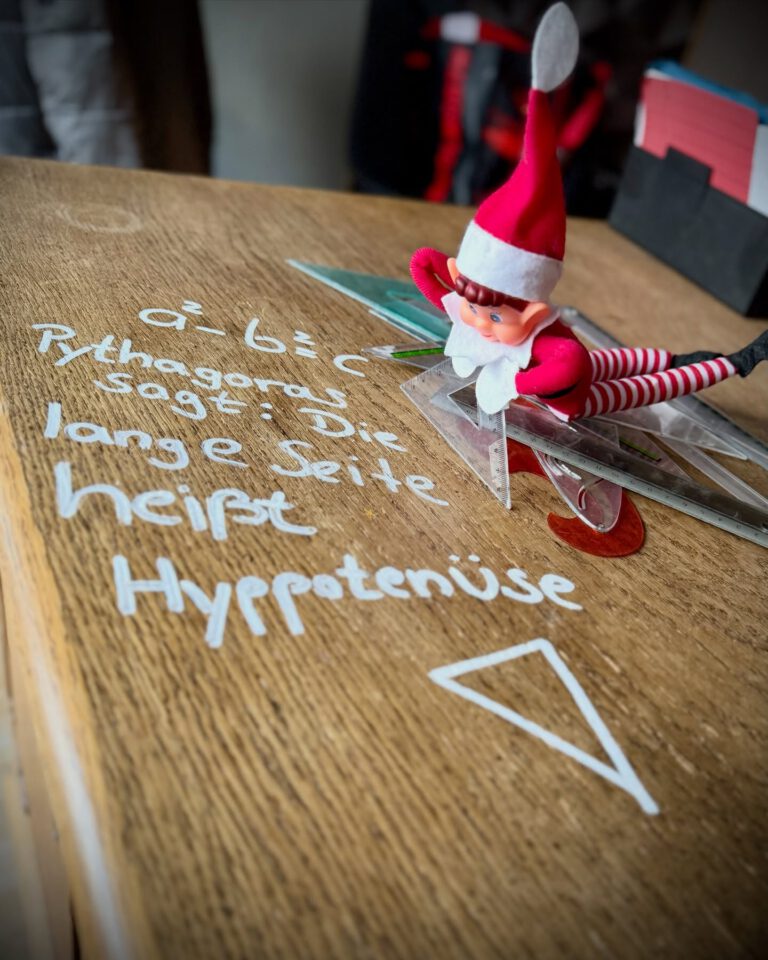 a² - b² = c
Pythagoras
sagt: Die
lange Seite
heißt
Hyppotenüse